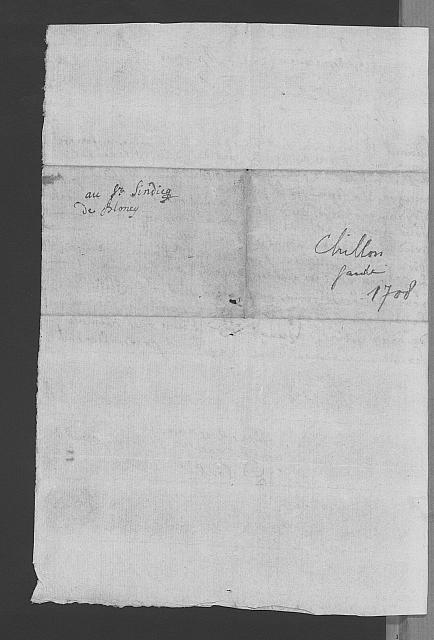 au Sr Sindicq
de Bloney
Chillon
garde
1708